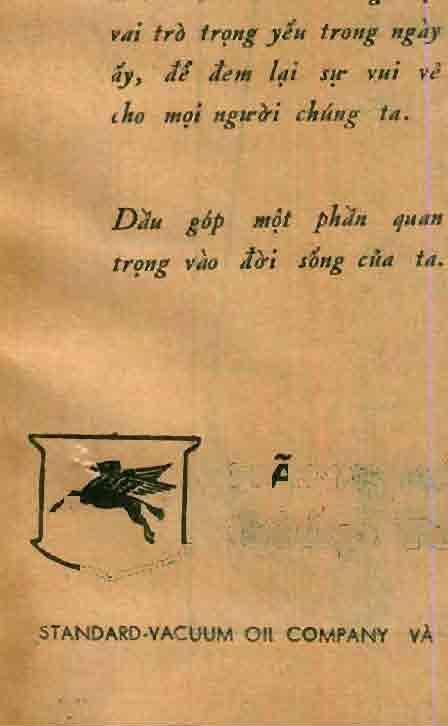 vai trò trọng yếu trong ngày
ấy, để đem lại sự vui vẻ
cho mọi người chúng ta.
Dầu góp một phần quan
trọng vào đời sống của ta.
STANDARD-VACUUM OIL COMPANY VÀ